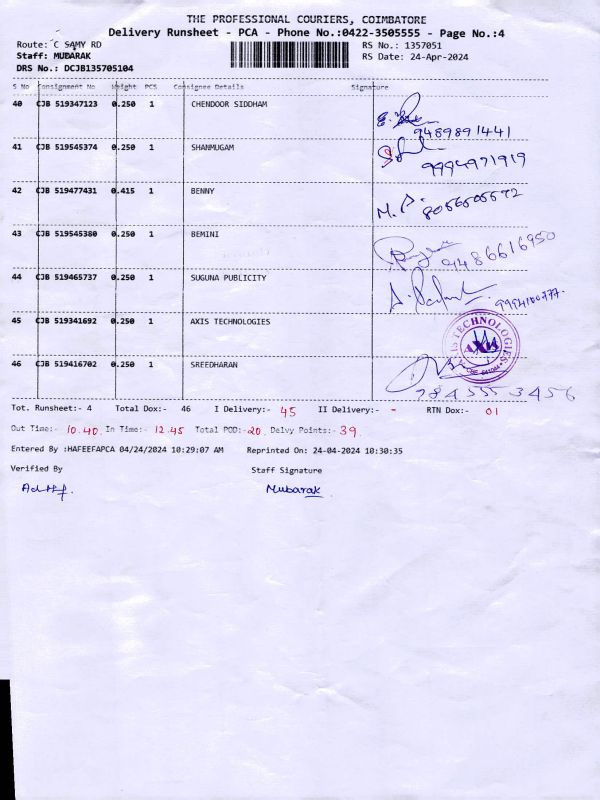 THE PROFESSIONAL COURIERS, COIMBATORE
Delivery Runsheet - PCA - Phone No.:0422-3505555 - Page No.:4
Route: C SAMY RD RS No.: 1357051
Staff: MUBARAK RS Date: 24-Apr-2024
DRS No.: DCJB135705104
S No Consignment No Weight PCS Consignee Details Signature
40 CJB 519347123 0.250 1 CHENDOOR SIDDHAM
9489891441
41 CJB 519545374 0.250 1 SHANMUGAM
9994971919
42 CJB 519477431 0.415 1 BENNY
43 CJB 519545380 0.250 1 BEMINI
9486616950
44 CJB 519465737 0.250 1 SUGUNA PUBLICITY
45 CJB 519341692 0.250 1 AXIS TECHNOLOGIES
AXIS TECHNOLOGIES
AXIS
46 CJB 519416702 0.250 1 SREEDHARAN
9845553456
Tot. Runsheet:- 4 Total Dox:- 46 I Delivery:- 45 II Delivery:- - RTN Dox:- 01
Out Time:- 10.40 In Time:- 12.45 Total POD:- 20 Delvy Points:- 39
Entered By :HAFEEFAPCA 04/24/2024 10:29:07 AM Reprinted On: 24-04-2024 10:30:35
Verified By Staff Signature
Mubarak